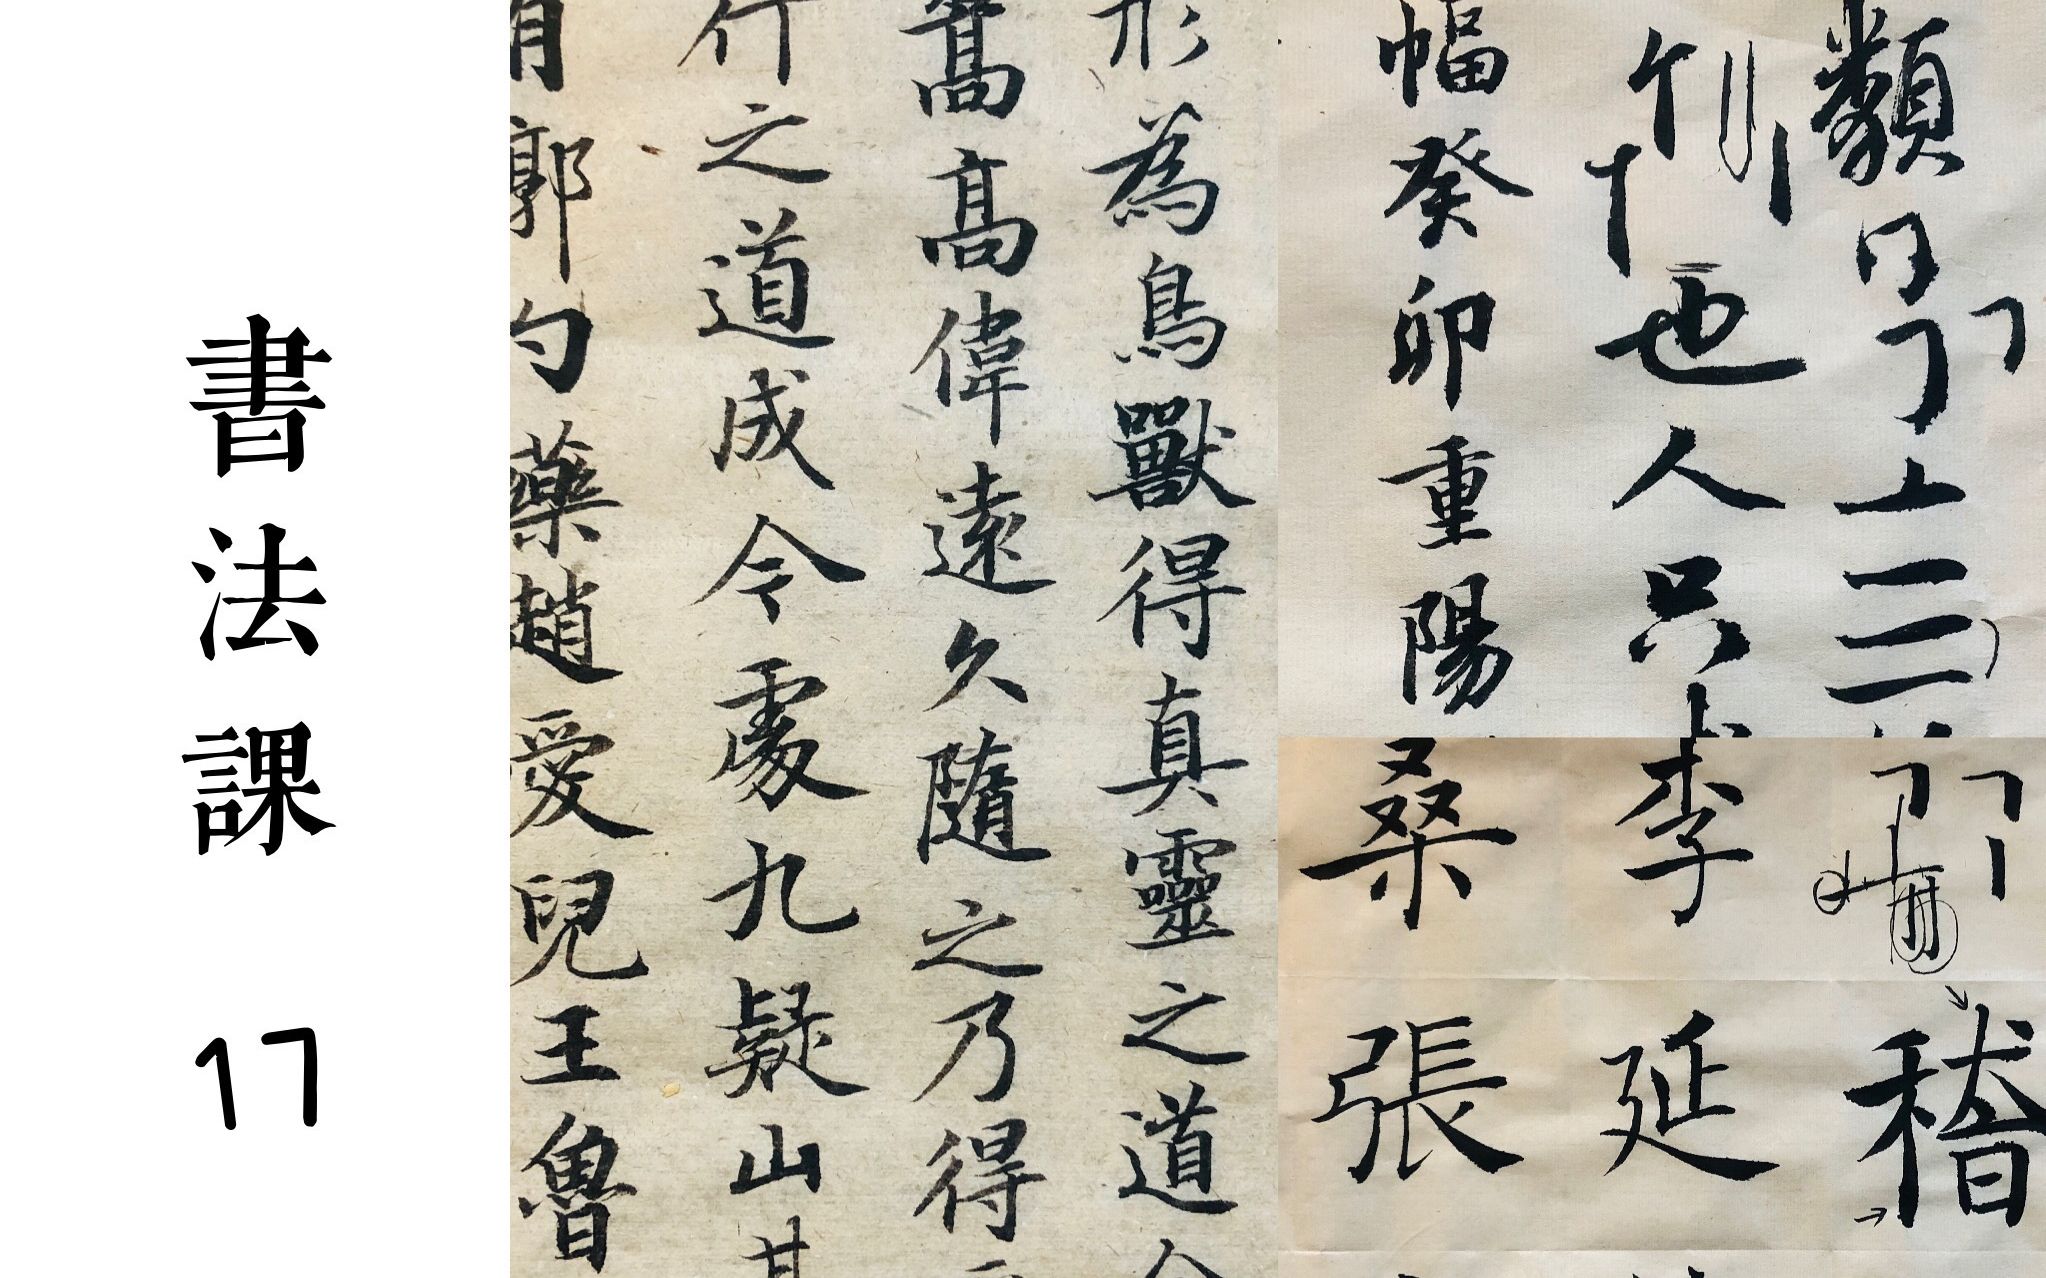 書法課 17
形為鳥獸得真靈之道
嵩高偉遠久隨之乃得
行之道成令處九疑山其
有郭勺藥趙愛兒王魯
類
也人只
幅癸卯重陽
稽
李延
桑張